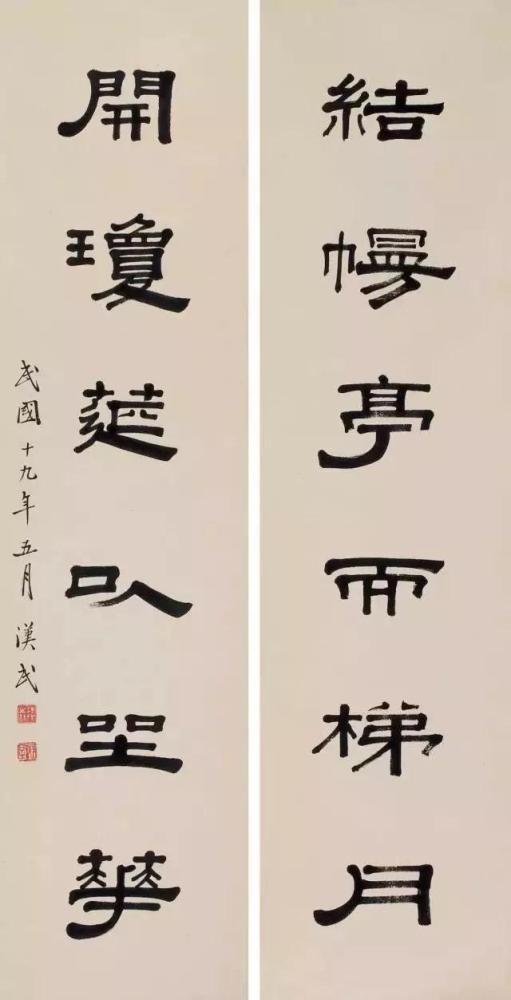 結幔亭而梯月
開瓊莚以坐華
民國十九年五月 漢民